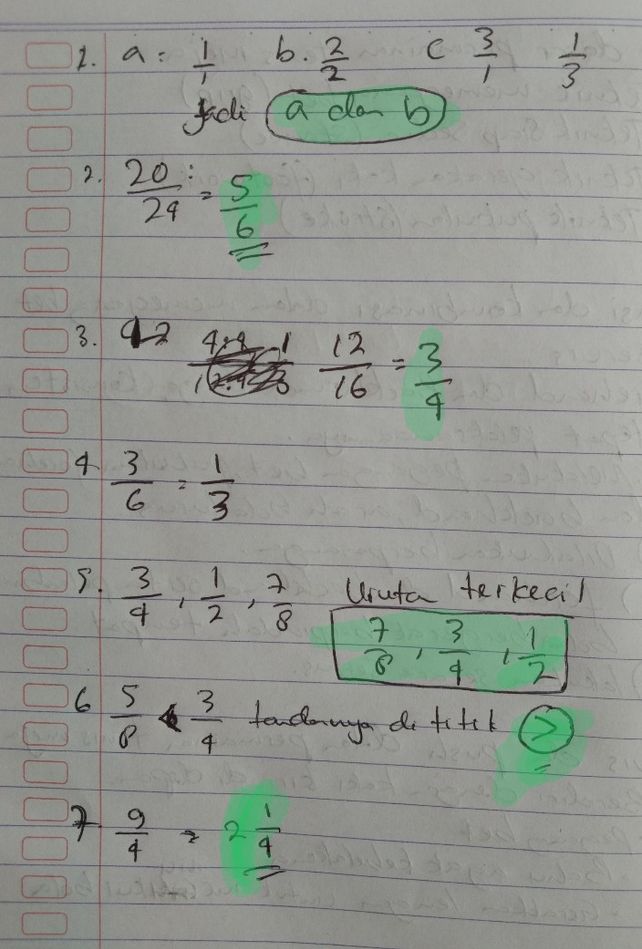 1. a = 1/1 b. 2/2 c 3/1 1/3
Jadi a dan b
2. 20/24 : = 5/6
3. 12/16 = 3/4
4 3/6 = 1/3
5. 3/4, 1/2, 7/8 Urutan terkecil
7/8, 3/4, 1/2
6 5/8 < 3/4 tandanya di titik >
7. 9/4 = 2 1/4